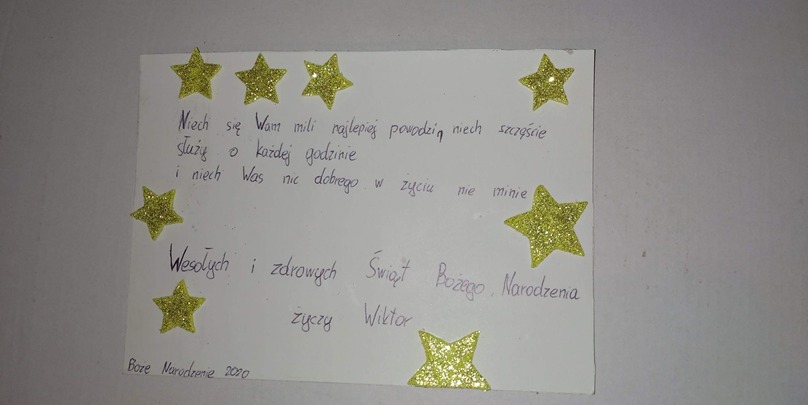 Niech się Wam mili najlepiej powodzią niech szczęście
służy o każdej godzinie
i niech Was nic dobrego w życiu nie minie
Wesołych i zdrowych Świąt Bożego Narodzenia
życzy Wiktor
Boże Narodzenie 2020